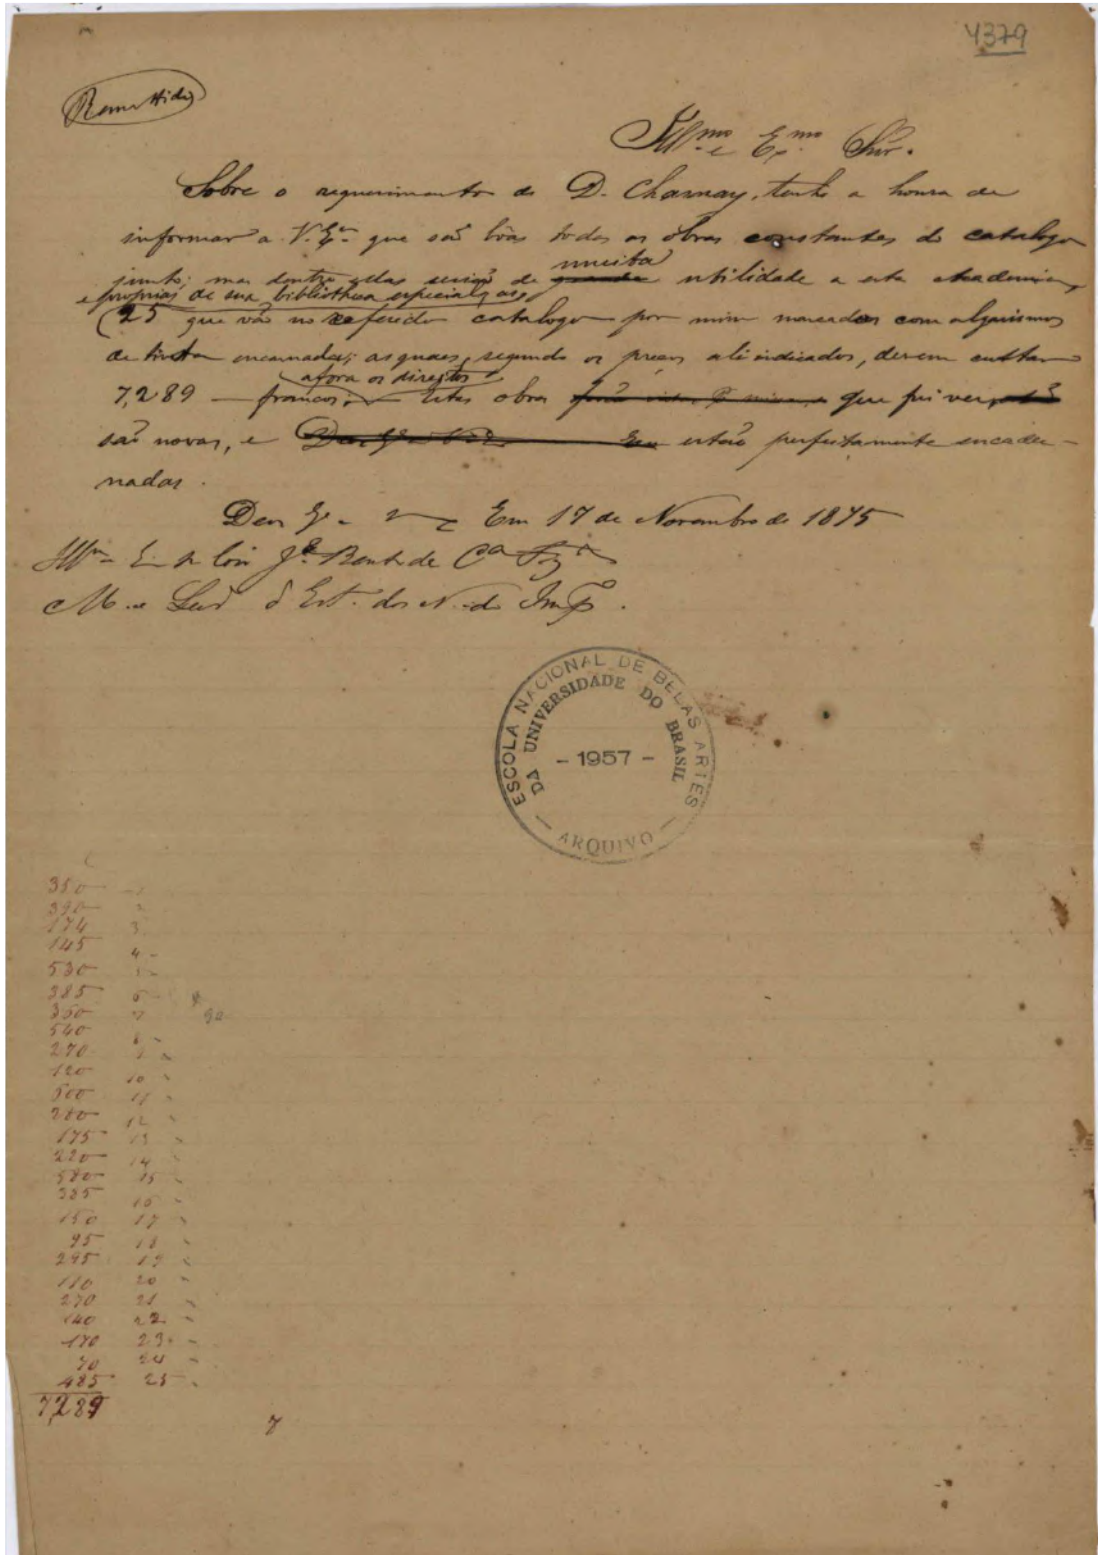 4379
Remettido
Ill.mo e Ex.mo Snr.
Sobre o requerimento de D. Charnay, tenho a honra de
informar a V. Ex.a que são bôas todas as obras constantes do catalogo
junto; mas dentre ellas serião de muita grande utilidade a esta Academia,
e proprias de sua bibliotheca especial, as
25 que vão no referido catalogo por mim marcadas com algarismos
de tinta encarnada; as quaes, segundo os preços ali indicados, devem custar
afora os direitos
7,289 francos; Estas obras que fui ver,
são novas, e estão perfeitamente encader-
nadas.
Deus G.e Em 17 de Novembro de 1875
Ill.mo J.e Bento da C.a
M. e Sec. d'Est. dos N. do Imp.o
ESCOLA NACIONAL DE BELAS ARTES
DA UNIVERSIDADE DO BRASIL
- 1957 -
- ARQUIVO -
350
390 2
174 3
145 4 -
530
385 6
350 7
540 8
270 9
120 10
600 11
12
175 13
220 14
580 15
385 16
150 17
95 18
295 19
110 20
270 21
140 22
170 23
70 24
485 25
7,289
7